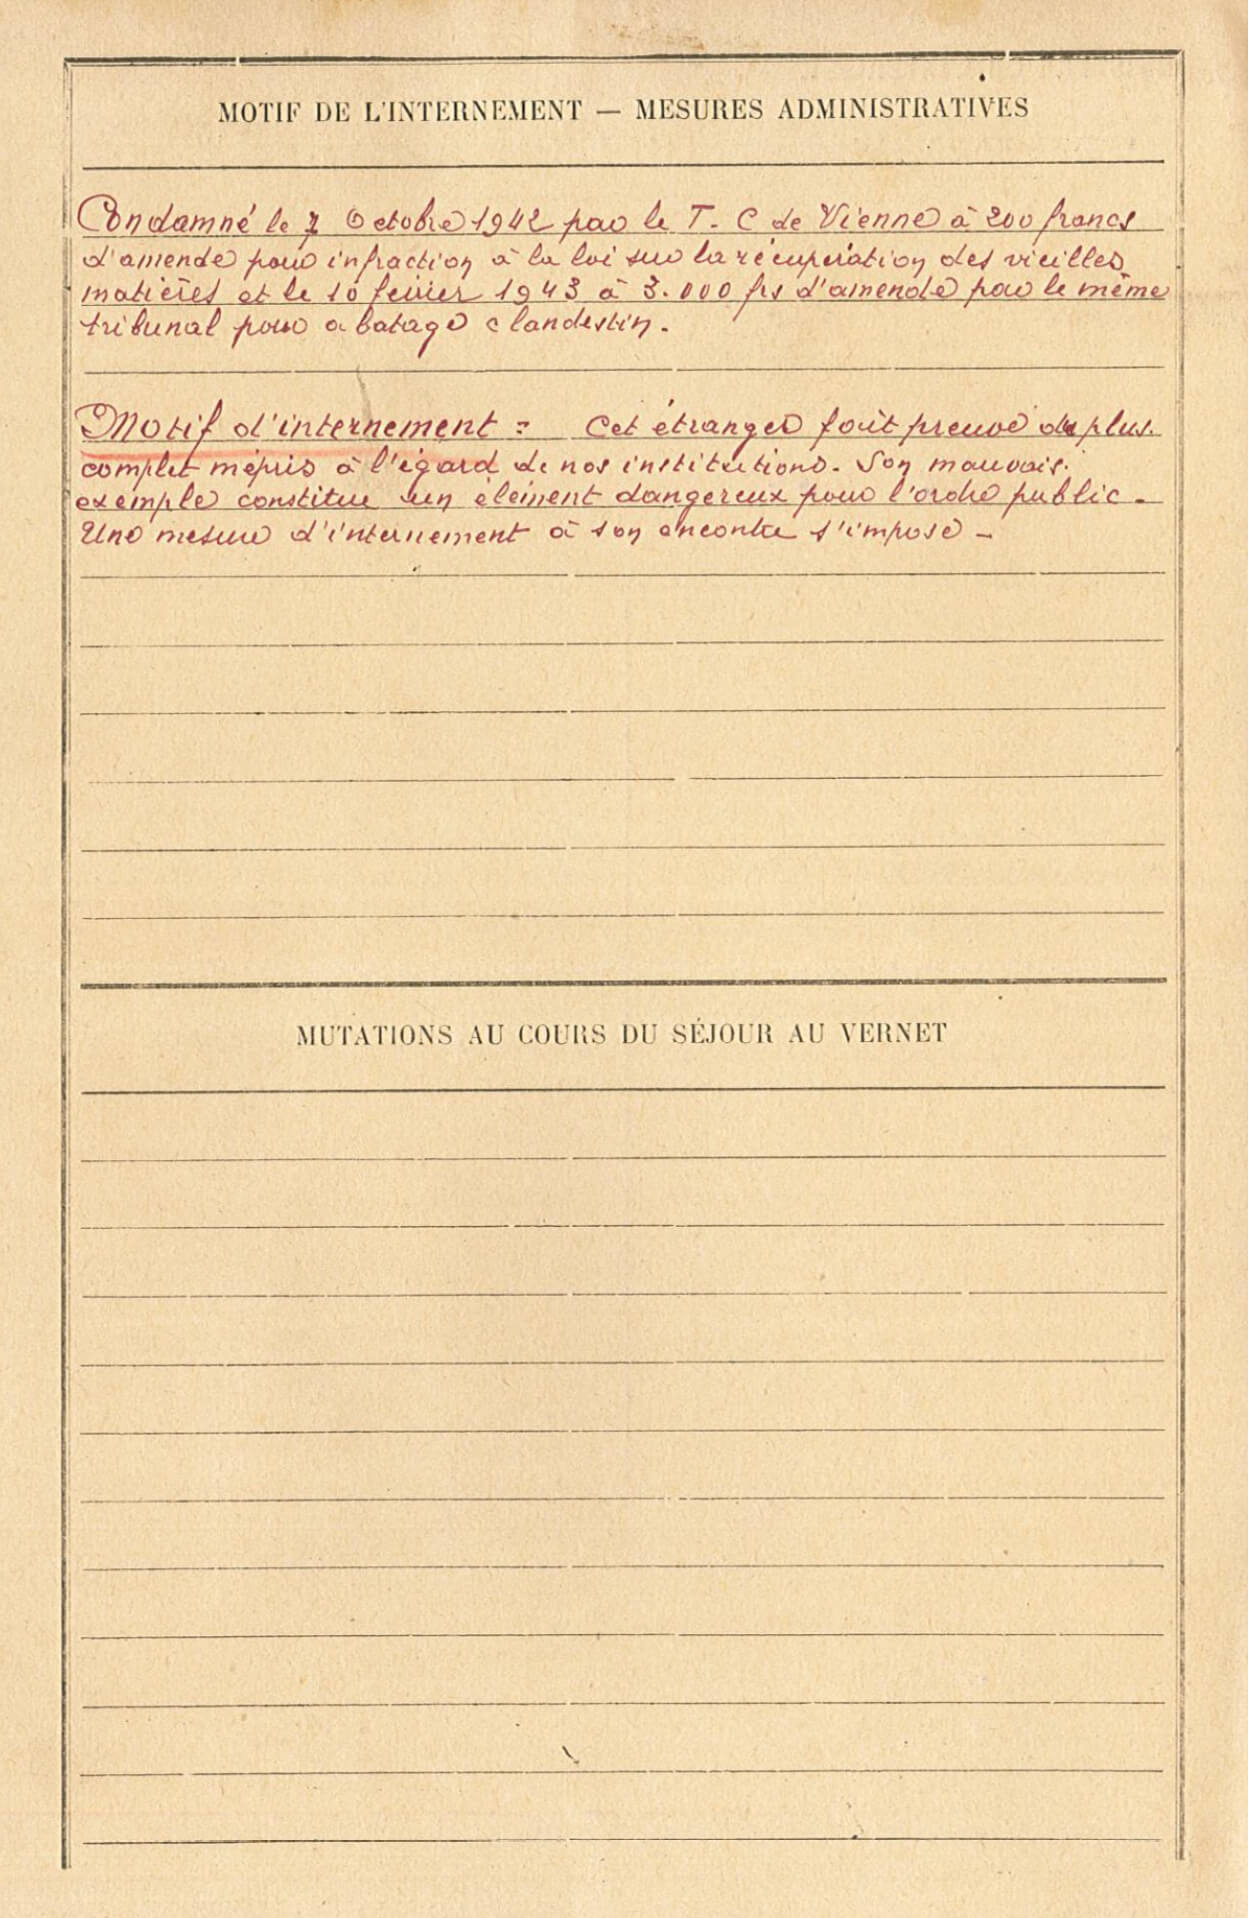 MOTIF DE L'INTERNEMENT — MESURES ADMINISTRATIVES
Condamné le 7 Octobre 1942 par le T. C de Vienne à 200 francs
d'amende pour infraction à la loi sur la récupération des vieilles
matières et le 10 février 1943 à 3.000 frs d'amende par le même
tribunal pour abatage clandestin.
Motif d'internement : Cet étranger fait preuve du plus
complet mépris à l'égard de nos institutions. Son mauvais
exemple constitue un élément dangereux pour l'ordre public.
Une mesure d'internement à son encontre s'impose -
MUTATIONS AU COURS DU SÉJOUR AU VERNET